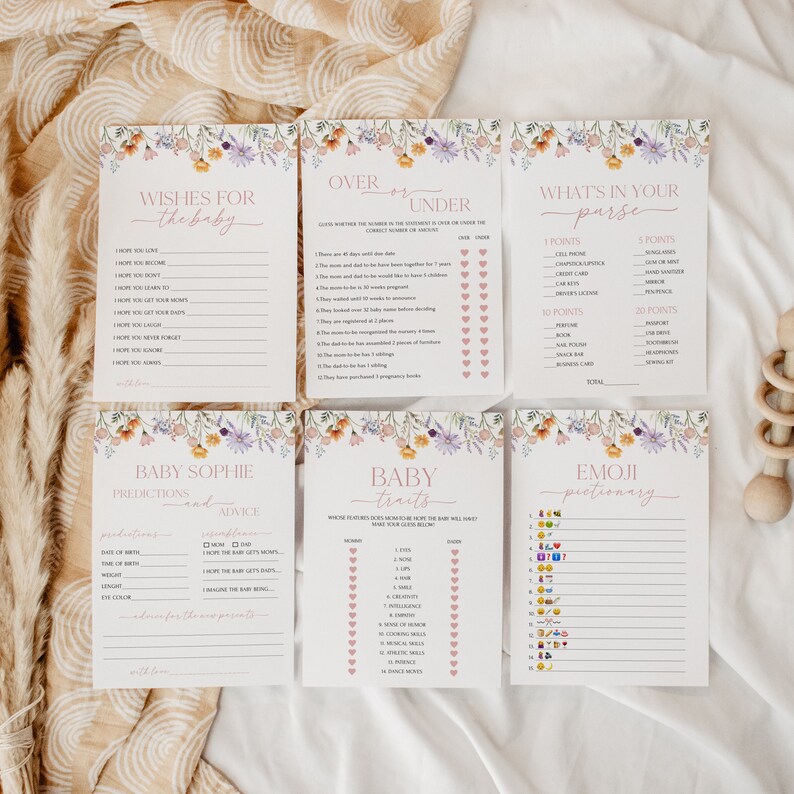 WISHES FOR
the baby
I HOPE YOU LOVE
I HOPE YOU BECOME
I HOPE YOU DON'T
I HOPE YOU LEARN TO
I HOPE YOU GET YOUR MOM'S
I HOPE YOU GET YOUR DAD'S
I HOPE YOU LAUGH
I HOPE YOU NEVER FORGET
I HOPE YOU IGNORE
I HOPE YOU ALWAYS
with love
OVER
or
UNDER
GUESS WHETHER THE NUMBER IN THE STATEMENT IS OVER OR UNDER THE
CORRECT NUMBER OR AMOUNT.
OVER UNDER
1.There are 45 days until due date
2.The mom and dad to-be have been together for 7 years
3.The mom and dad to-be would like to have 5 children
4.The mom-to-be is 30 weeks pregnant
5.They waited until 10 weeks to announce
6.They looked over 32 baby name before deciding
7.They are registered at 2 places
8.The mom-to-be reorganized the nursery 4 times
9.The dad-to-be has assambled 2 pieces of furniture
10.The mom-to-be has 3 siblings
11.The dad-to-be has 1 sibling
12.They have purchased 3 pregnancy books
WHAT'S IN YOUR
purse
1 POINTS
CELL PHONE
CHAPSTICK/LIPSTICK
CREDIT CARD
CAR KEYS
DRIVER'S LICENSE
5 POINTS
SUNGLASSES
GUM OR MINT
HAND SANITIZER
MIRROR
PEN/PENCIL
10 POINTS
PERFUME
BOOK
NAIL POLISH
SNACK BAR
BUSINESS CARD
20 POINTS
PASSPORT
USB DRIVE
TOOTHBRUSH
HEADPHONES
SEWING KIT
TOTAL
BABY SOPHIE
PREDICTIONS
and
ADVICE
predictions
DATE OF BIRTH
TIME OF BIRTH
WEIGHT
LENGHT
EYE COLOR
resemblance
MOM DAD
I HOPE THE BABY GET'S MOM'S....
I HOPE THE BABY GET'S DAD'S....
I IMAGINE THE BABY BEING....
advice for the new parents
with love
BABY
traits
WHOSE FEATURES DOES MOM-TO-BE HOPE THE BABY WILL HAVE?
MAKE YOUR GUESS BELOW!
MOMMY DADDY
1. EYES
2. NOSE
3. LIPS
4. HAIR
5. SMILE
6. CREATIVITY
7. INTELLIGENCE
8. EMPATHY
9. SENSE OF HUMOR
10. COOKING SKILLS
11. MUSICAL SKILLS
12. ATHLETIC SKILLS
13. PATIENCE
14. DANCE MOVES
EMOJI
pictionary
1.
2.
3.
4.
5.
6.
7.
8.
9.
10.
11.
12.
13.
14.
15.